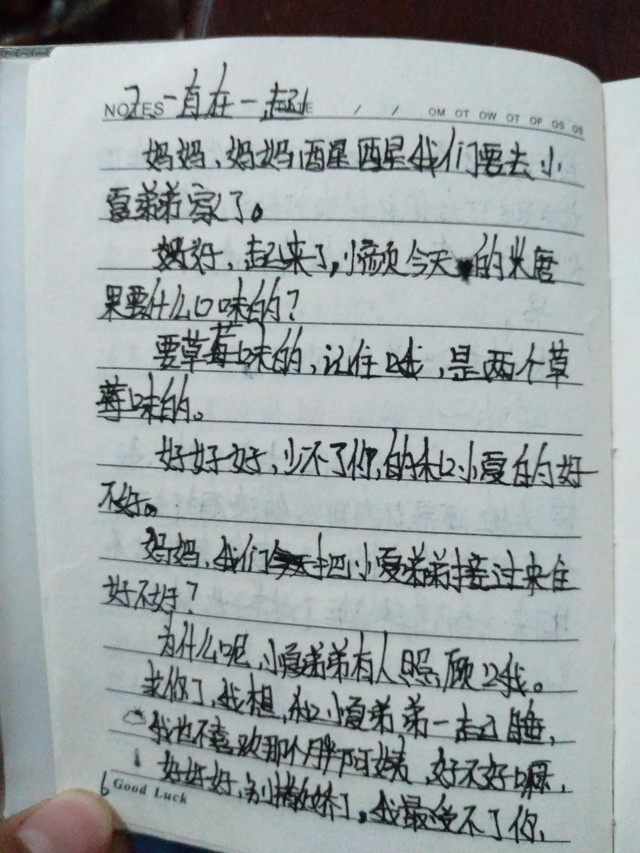 NOTES 2、一直在一起 / / OM OT OW OT OF OS OS
妈妈、妈妈醒醒我们要去小
夏弟弟家了。
好好，起来了，小颜今天的糖
果要什么口味的？
要草莓味的，记住哦，是两个草
莓味的。
好好好，少不了你，的和小夏的好
不好。
妈妈、我们把小夏弟弟接过来住
好不好？
为什么呢，小夏弟弟有人照顾哦。
求你了，我想，和小夏弟弟一起睡，
我也不喜欢那个胖阿姨，好不好嘛，
好好好，别撒娇了，我最受不了你，
6 Good Luck